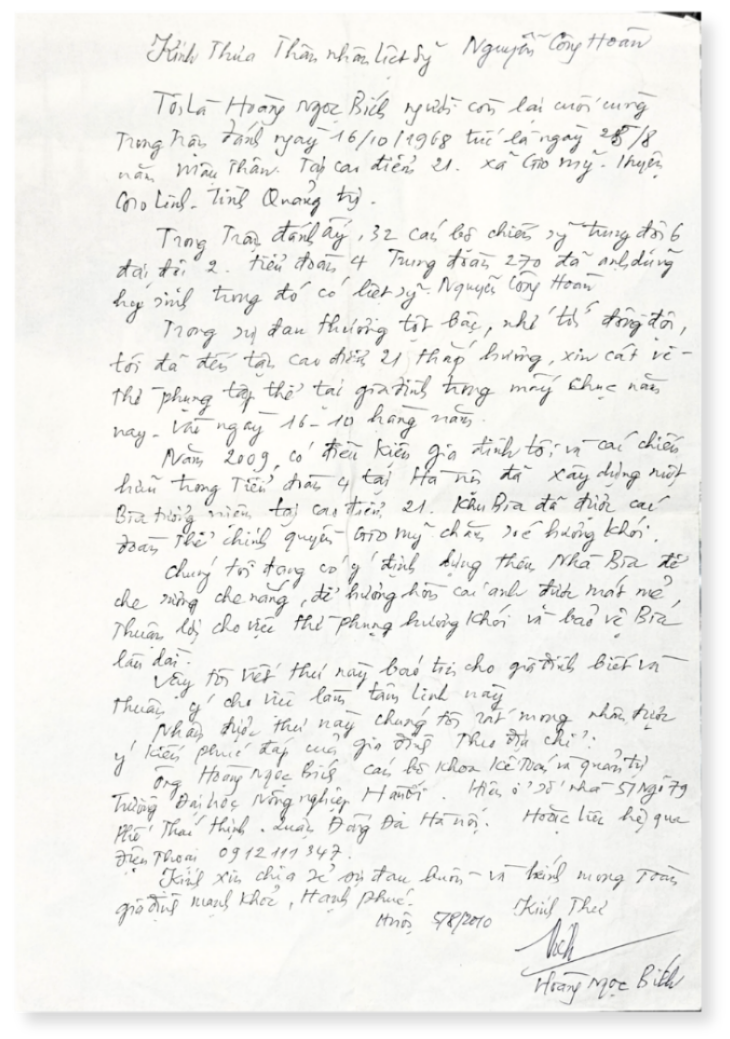 Kính Thưa Thân nhân liệt sỹ Nguyễn Công Hoan
Tôi Là Hoàng Ngọc Bích người còn lại cuối cùng
Trong trận đánh ngày 16/10/1968 tức là ngày 25/8
năm Mậu Thân. Tại cao điểm 21. xã Gio Mỹ. Huyện
Gio Linh - tỉnh Quảng trị.
Trong Trận đánh ấy, 32 cán bộ chiến sỹ trung đội 6
đại đội 2. tiểu đoàn 4 Trung đoàn 270 đã anh dũng
hy sinh trong đó có liệt sỹ Nguyễn Công Hoan
Trong sự đau thương tột bậc, nhớ tới đồng đội,
tôi đã đến tận cao điểm 21 thắp hương, xin cát về -
thờ phụng tập thể tại gia đình trong mấy chục năm
nay - vào ngày 16-10 hàng năm.
Năm 2009, có điều kiện gia đình tôi và các chiến
hữu trong Tiểu đoàn 4 tại Hà Nội đã xây dựng một
Bia tưởng niệm tại cao điểm 21. Khu Bia đã được các
đoàn thể chính quyền Gio Mỹ chăm sóc hương khói.
Chúng tôi đang có ý định dựng thêm Nhà Bia để
che sương che nắng, để hương hồn các anh được mát mẻ,
Thuận lợi cho việc thờ phụng hương khói và bảo vệ Bia
lâu dài.
Vậy tôi viết thư này báo tin cho gia đình biết và
thuận ý cho việc làm tâm linh này
Nhận được thư này chúng tôi rất mong nhận được
ý kiến phúc đáp của gia đình Theo địa chỉ:
Ông Hoàng Ngọc Bích cán bộ khoa Kế Toán và quản trị
Trường Đại học Nông nghiệp Hà Nội. Hiện ở số nhà 57 Ngõ 79
Phố Thái Thịnh. Quận Đống Đa Hà Nội. Hoặc liên hệ qua
Điện Thoại 0912111347.
Kính xin chia sẻ sự đau buồn - và kính mong Toàn
gia đình mạnh khỏe, Hạnh phúc.
Hà Nội 5/8/2010 Kính Thư
Bích
Hoàng Ngọc Bích